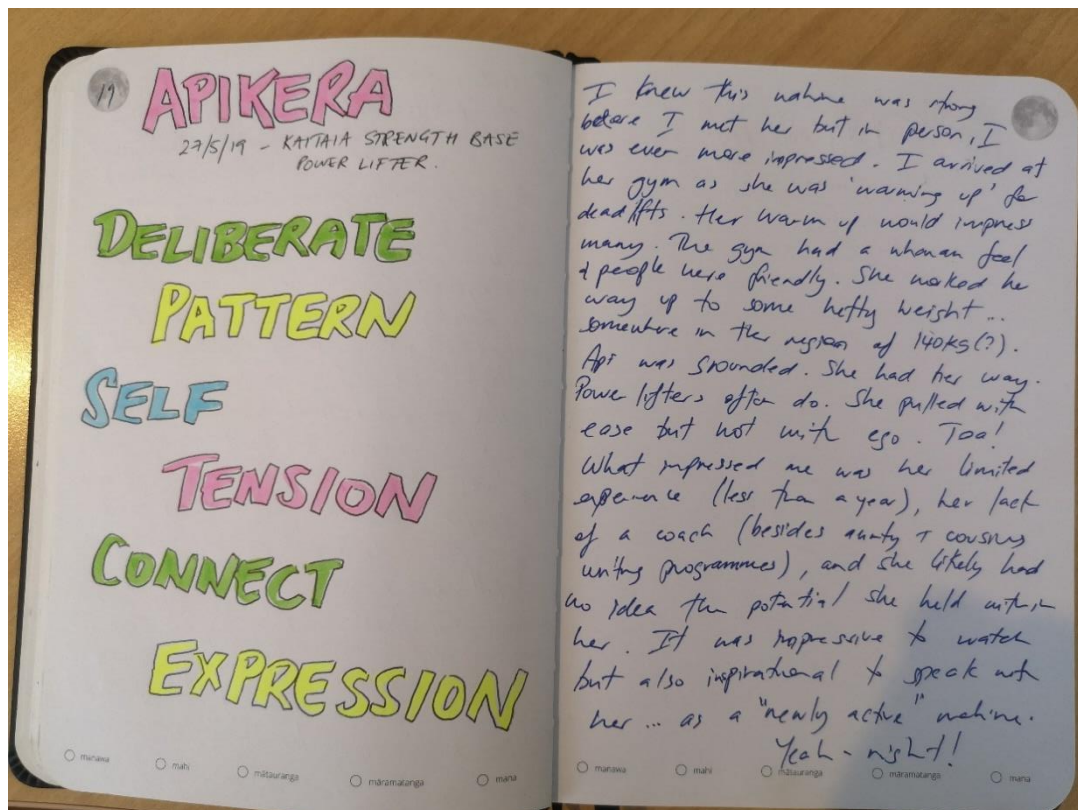 19
APIKERA
27/5/19 - KAITAIA STRENGTH BASE
POWER LIFTER.
DELIBERATE
PATTERN
SELF
TENSION
CONNECT
EXPRESSION
manawa
mahi
mātauranga
māramatanga
mana
I knew this wahine was strong
before I met her but in person, I
was even more impressed. I arrived at
her gym as she was 'warming up' for
deadlifts. Her warm up would impress
many. The gym had a whanau feel
& people were friendly. She worked her
way up to some hefty weight...
somewhere in the region of 140kg(?).
Api was grounded. She had her way.
Power lifters often do. She pulled with
ease but not with ego. Toa!
What impressed me was her limited
experience (less than a year), her lack
of a coach (besides aunty + cousins
writing programmes), and she likely had
no idea the potential she held within
her. It was impressive to watch
but also inspirational to speak with
her... as a "newly active" wahine.
Yeah - right!
manawa
mahi
mātauranga
māramatanga
mana